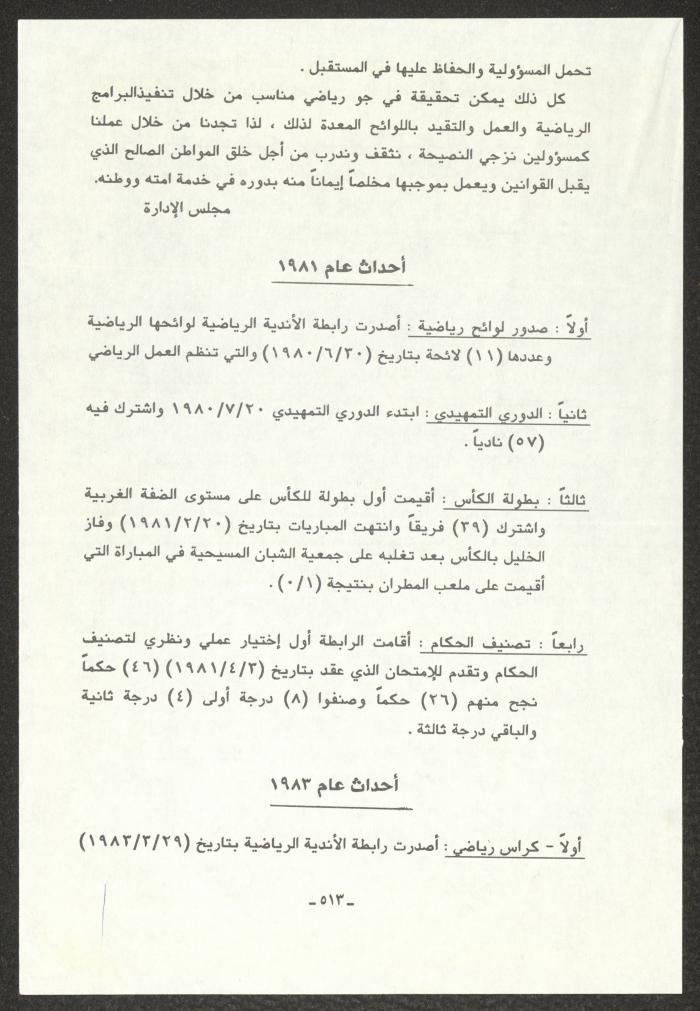 تحمل المسؤولية والحفاظ عليها في المستقبل .
كل ذلك يمكن تحقيقة في جو رياضي مناسب من خلال تنفيذالبرامج
الرياضية والعمل والتقيد باللوائح المعدة لذلك ، لذا تجدنا من خلال عملنا
كمسؤولين نزجي النصيحة ، نثقف وندرب من أجل خلق المواطن الصالح الذي
يقبل القوانين ويعمل بموجبها مخلصاً إيماناً منه بدوره في خدمة امته ووطنه.
مجلس الإدارة
أحداث عام ١٩٨١
أولاً : صدور لوائح رياضية : أصدرت رابطة الأندية الرياضية لوائحها الرياضية
وعددها (١١) لائحة بتاريخ (١٩٨٠/٦/٣٠) والتي تنظم العمل الرياضي
ثانياً : الدوري التمهيدي : ابتدء الدوري التمهيدي ١٩٨٠/٧/٢٠ واشترك فيه
(٥٧) نادياً .
ثالثاً : بطولة الكأس : أقيمت أول بطولة للكأس على مستوى الضفة الغربية
واشترك (٣٩) فريقاً وانتهت المباريات بتاريخ (١٩٨١/٢/٢٠) وفاز
الخليل بالكأس بعد تغلبه على جمعية الشبان المسيحية في المباراة التي
أقيمت على ملعب المطران بنتيجة (٠/١) .
رابعاً : تصنيف الحكام : أقامت الرابطة أول إختيار عملي ونظري لتصنيف
الحكام وتقدم للإمتحان الذي عقد بتاريخ (١٩٨١/٤/٣) (٤٦) حكماً
نجح منهم (٢٦) حكماً وصنفوا (٨) درجة أولى (٤) درجة ثانية
والباقي درجة ثالثة .
أحداث عام ١٩٨٣
أولاً - كراس رياضي : أصدرت رابطة الأندية الرياضية بتاريخ (١٩٨٣/٣/٢٩)
- ٥١٣ -